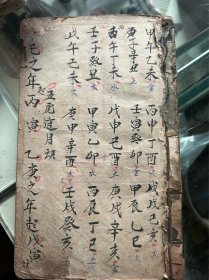 甲午乙未金 丙申丁酉火 戊戌己亥木
庚子辛丑土 壬寅癸卯金 甲辰乙巳火
丙午丁未水 戊申己酉土 庚戌辛亥金
壬子癸丑木 甲寅乙卯水 丙辰丁巳土
戊午己未火 庚申辛酉木 壬戌癸亥水
五虎遁月訣
己之年丙寅 乙庚之年起戊寅